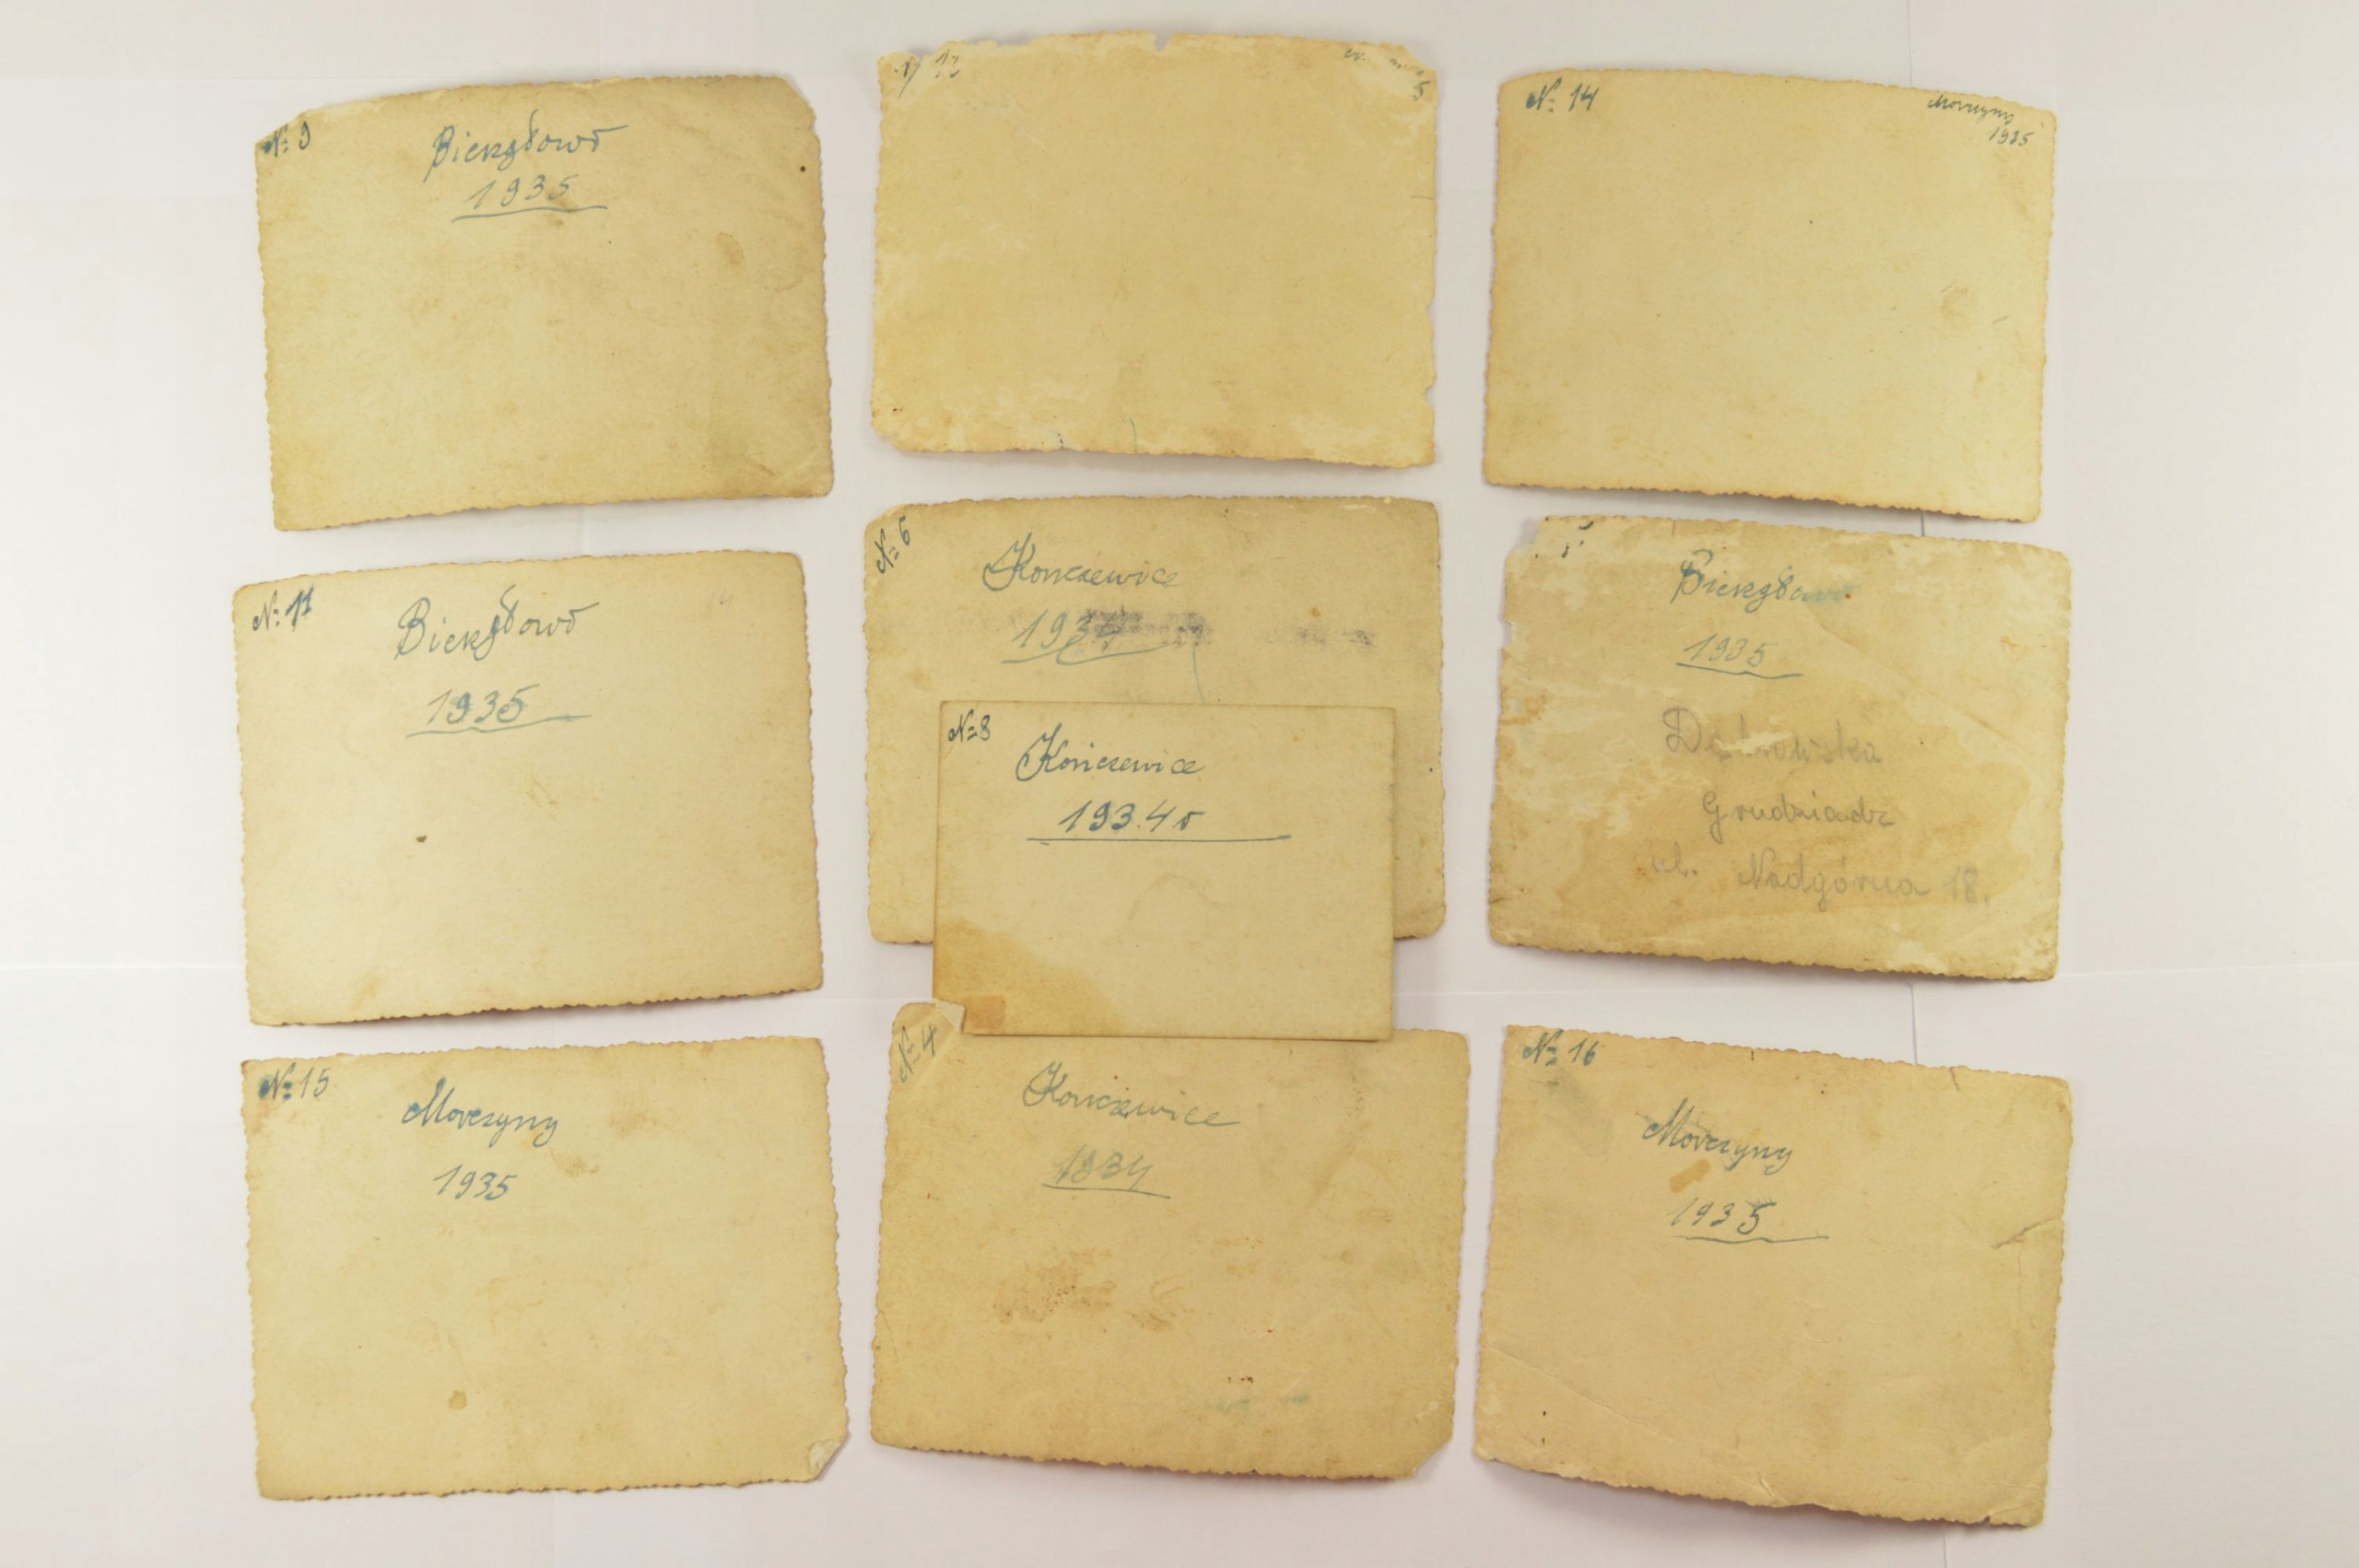 № 9
Bierzgłowo
1935
12
№ 14
Morczyny
1935
№ 11
Bierzgłowo
1935
№ 6
Kończewice
1934
№ 8
Kończewice
1934 r
Bierzgłowo
1935
Grudziadz
ul. Nadgórna 18.
№ 15
Morczyny
1935
№ 4
Kończewice
1934
№ 16
Morczyny
1935